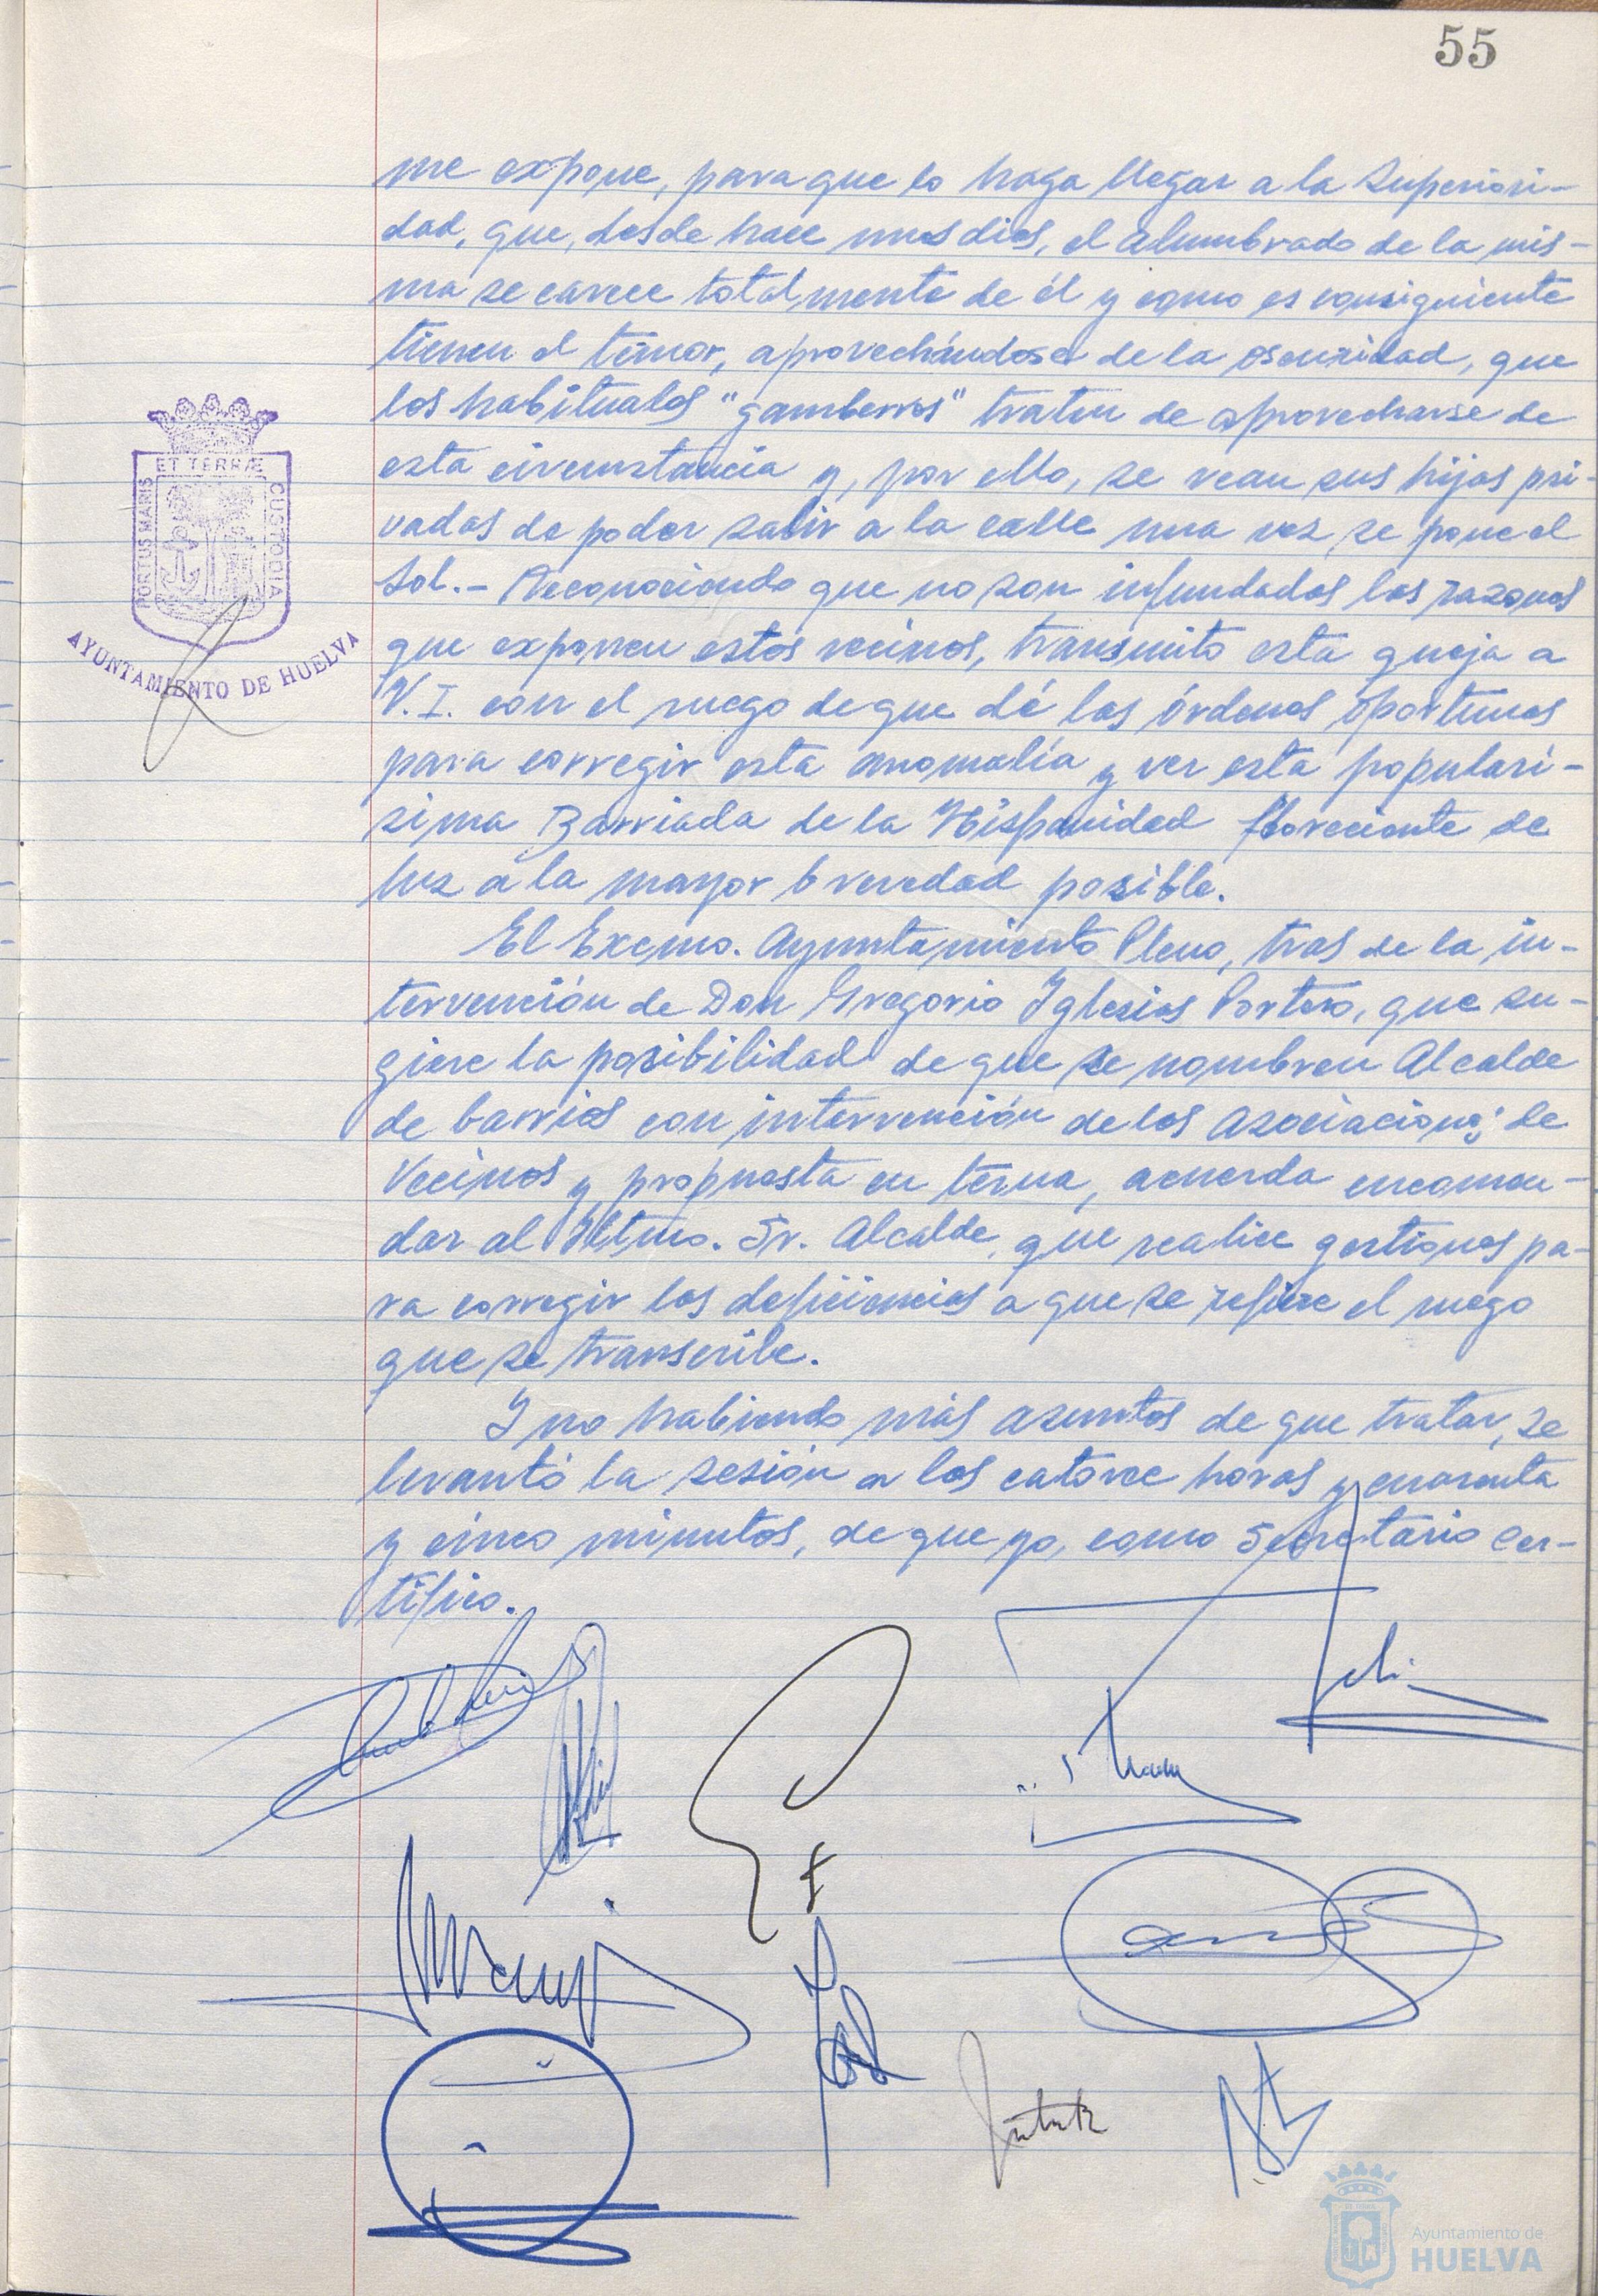 55
me expone, para que lo haga llegar a la Superiori-
dad, que, desde hace unos dias, el alumbrado de la mis-
ma se carece totalmente de él y como es consiguiente
tienen el temor, aprovechándose de la oscuridad, que
los habituales "gamberros" traten de aprovecharse de
esta circunstancia y, por ello, se vean sus hijos pri-
vados de poder salir a la calle una vez se pone el
Sol.- Reconociendo que no son infundadas las razones
que exponen estos vecinos, transmito esta queja a
V.I. con el ruego de que dé las órdenes oportunas
para corregir esta anomalía y ver esta populari-
sima Barriada de la Hispanidad floreciente de
luz a la mayor brevedad posible.
El Excmo. Ayuntamiento Pleno, tras de la in-
tervención de Don Gregorio Iglesias Portero, que su-
giere la posibilidad de que se nombren Alcalde
de barrios con intervención de las Asociaciones de
Vecinos y propuesta en terna, acuerda encomen-
dar al Iltmo. Sr. Alcalde, que realice gestiones pa-
ra corregir las deficiencias a que se refiere el ruego
que se transcribe.
Y no habiendo más asuntos de que tratar, se
levantó la sesión a las catorce horas y cuarenta
y cinco minutos, de que yo, como Secretario cer-
tifico.
ET TERRÆ
PORTUS MARIS
CUSTODIA
AYUNTAMIENTO DE HUELVA
Ayuntamiento de
HUELVA